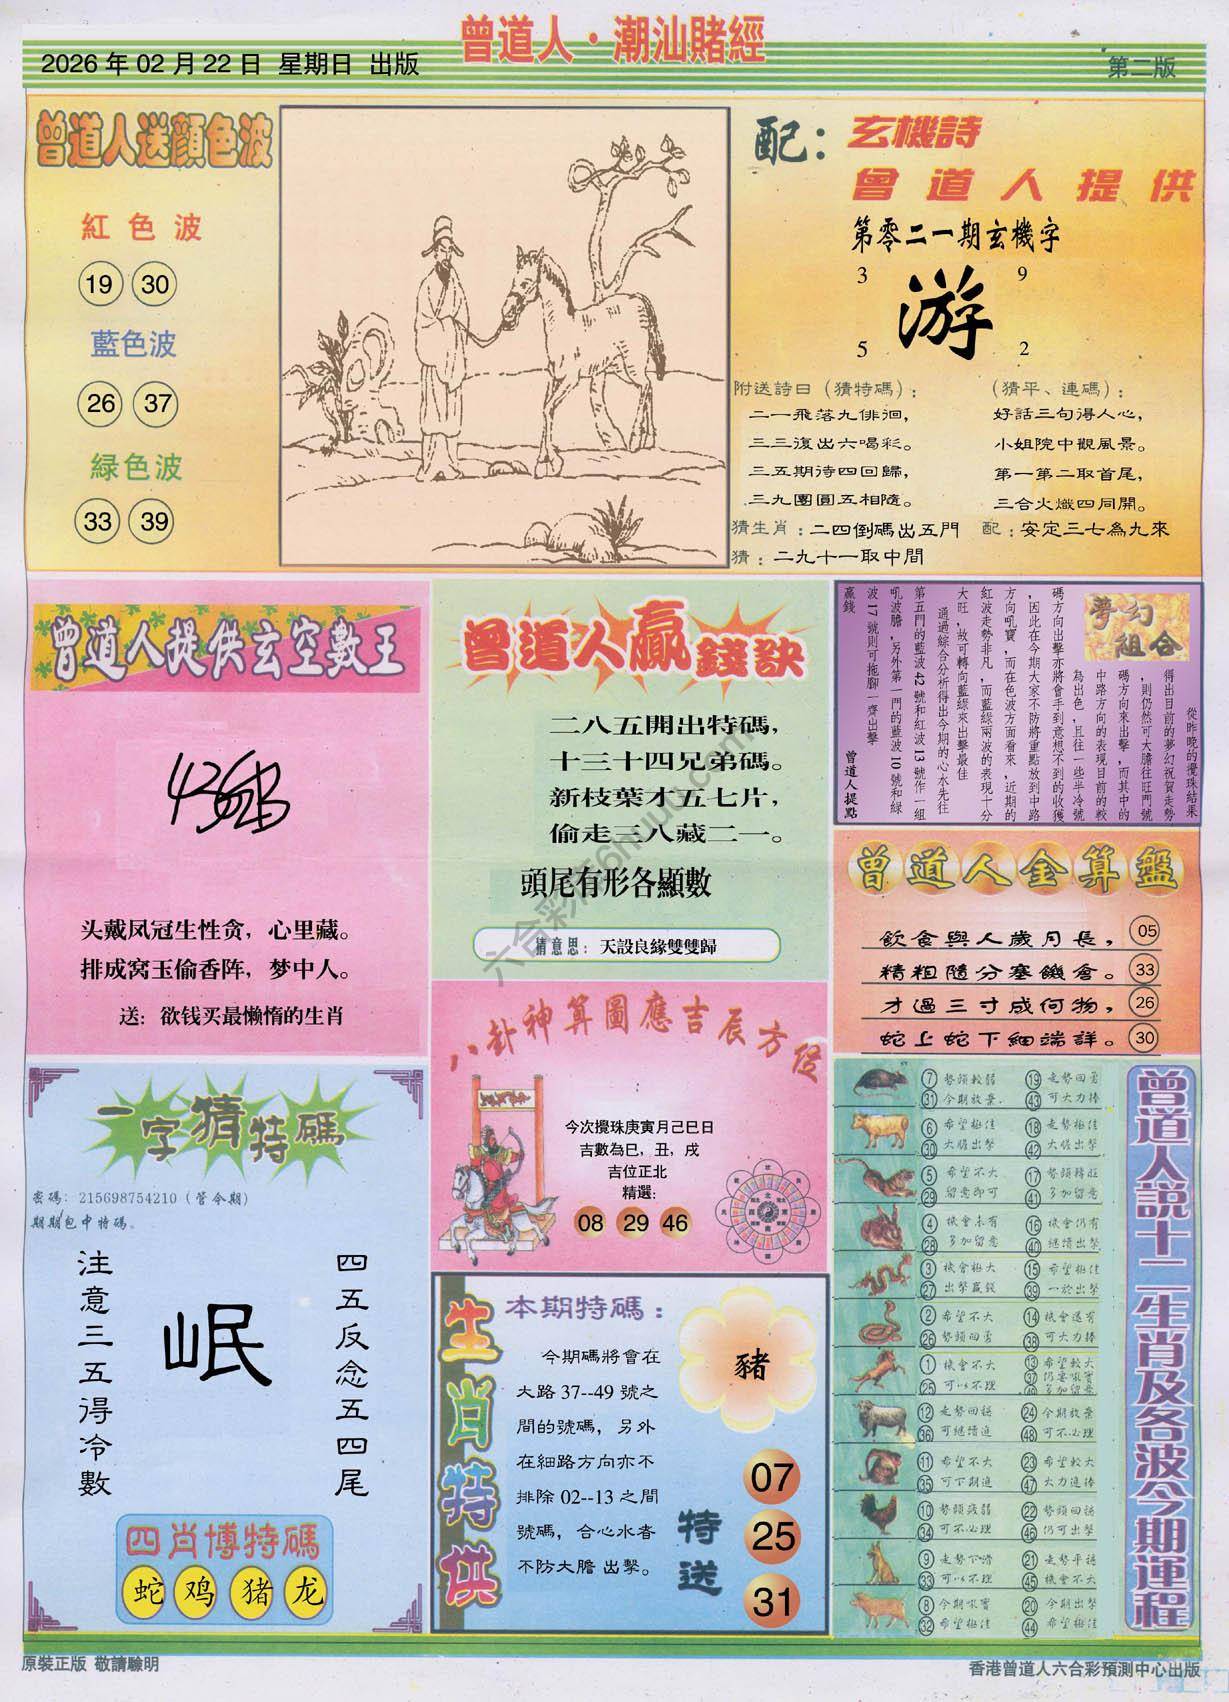 曾道人·潮汕賭經
2026 年 02 月 22 日 星期日 出版
第二版
曾道人送顏色波
紅色波
19 30
藍色波
26 37
緑色波
33 39
配：玄機詩
曾道人提供
第零二一期玄機字
3 9
游
5 2
附送詩曰（猜特碼）：
二一飛落九俳徊，
三三復出六喝彩。
三五期待四回歸，
三九團圓五相隨。
（猜平、連碼）：
好話三句得人心，
小姐院中觀風景。
第一第二取首尾，
三合火熾四同開。
猜生肖：二四倒碼出五門 配：安定三七為九來
猜：二九十一取中間
曾道人提供玄空數王
头戴凤冠生性贪，心里藏。
排成窝玉偷香阵，梦中人。
送：欲钱买最懒惰的生肖
曾道人贏錢訣
二八五開出特碼，
十三十四兄弟碼。
新枝葉才五七片，
偷走三八藏二一。
頭尾有形各顯數
猜意思：天設良緣雙雙歸
夢幻組合
從昨晚的攪珠結果
得出目前的夢幻祝賀走勢
，則仍然可大膽往旺門號
碼方向來出擊，而其中的
中路方向的表現目前的較
為出色，且往一些半冷號
碼方向出擊亦將會手到意想不到的收獲
，因此在今期大家不防將重點放到中路
方向吼寶，而在色波方面看來，近期的
紅波走勢非凡，而藍緑兩波的表現十分
大旺，故可轉向藍緑來出擊最佳
通過綜合分析得出今期的心水先往
第五門的藍波 42 號和紅波 13 號作一組
吼波膽，另外第一門的藍波 10 號和緑
波 17 號則可拖腳一齊出擊
贏錢
曾道人提點
曾道人金算盤
飲食與人歲月長， 05
精粗隨分塞饑倉。 33
才過三寸成何物， 26
蛇上蛇下細端詳。 30
八卦神算圖應吉辰方位
今次攪珠庚寅月己巳日
吉數為巳，丑，戌
吉位正北
精選：
08 29 46
一字猜特碼
密碼：215698754210（管令期）
期期包中特碼。
注意三五得冷數
岷
四五反念五四尾
四肖博特碼
蛇 鸡 猪 龙
生肖特供
本期特碼：
今期碼將會在
大路 37--49 號之
間的號碼，另外
在細路方向亦不
排除 02--13 之間
號碼，合心水者
不防大膽 出擊。
豬
特送
07
25
31
曾道人説十二生肖及各波今期運程
7 勢頭較弱 19 走勢回勇
31 今期放棄 43 可大力捧
6 希望極佳 18 走勢極佳
30 大膽出擊 42 大膽出擊
5 希望不大 17 勢頭轉旺
29 留意即可 41 多加留意
4 機會未有 16 機會仍有
28 多加留意 40 繼續出擊
3 機會極大 15 希望極佳
27 出擊贏錢 39 一於出擊
2 希望不大 14 機會還有
26 勢頭回勇 38 可大力捧
1 機會不大 13 希望較大
25 可以不理 37 仍要吼實
49 多加留意
12 走勢回穩 24 今期放棄
36 可繼續追 48 可不必理
11 希望不大 23 希望較大
35 可下期追 47 大力追捧
10 勢頭疲弱 22 勢頭回穩
34 可不必理 46 仍可出擊
9 走勢下滑 21 走勢平穩
33 可以不理 45 機會不大
8 今期吼實 20 今期出擊
32 希望極佳 44 希望極佳
原裝正版 敬請驗明
香港曾道人六合彩預測中心出版